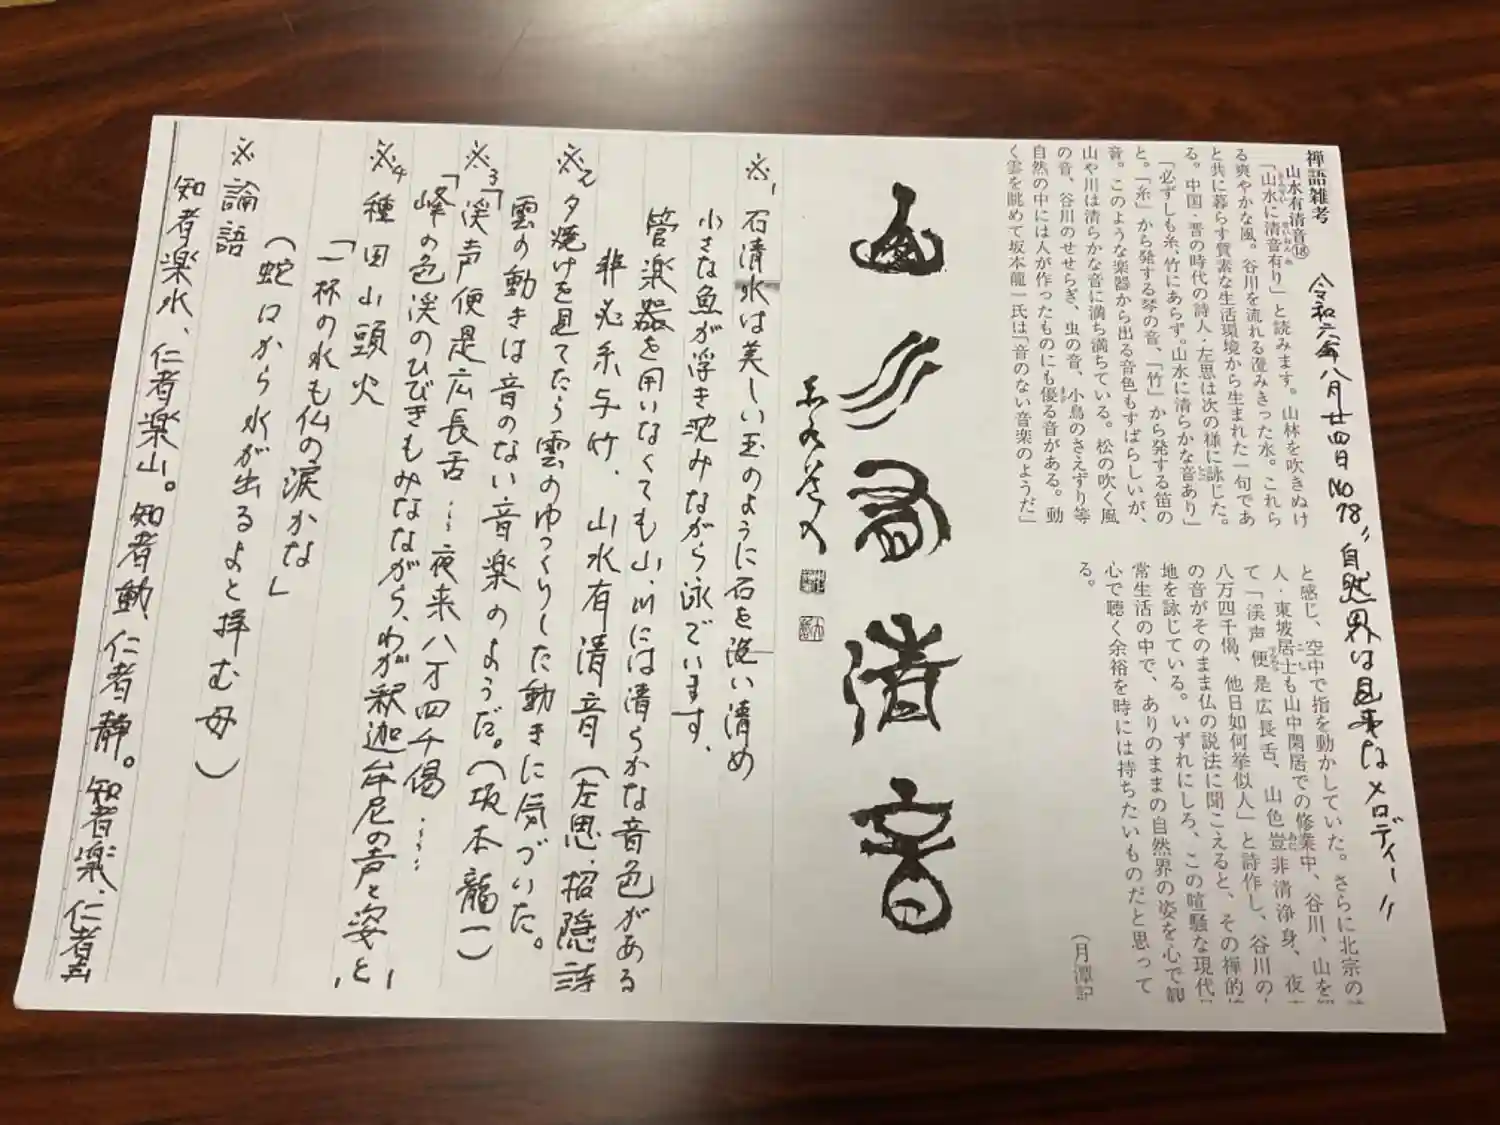 禅語雑考
令和六年八月廿四日 No78 "自然界は見事なメロディー"
山水有清音⑱
「山水に清音有り」と読みます。山林を吹きぬけ
る爽やかな風。谷川を流れる澄みきった水。これら
と共に暮らす質素な生活環境から生まれた一句であ
る。中国・晋の時代の詩人・左思は次の様に詠じた。
「必ずしも糸、竹にあらず。山水に清らかな音あり」
と。「糸」から発する琴の音、「竹」から発する笛の
音。このような楽器から出る音色もすばらしいが、
山や川は清らかな音に満ち満ちている。松の吹く風
の音、谷川のせせらぎ、虫の音、小鳥のさえずり等
自然の中には人が作ったものにも優る音がある。動
く雲を眺めて坂本龍一氏は「音のない音楽のようだ」
と感じ、空中で指を動かしていた。さらに北宗の
人・東坡居士も山中閑居での修業中、谷川、山を
て「渓声便是広長舌、山色豈非清浄身、夜
八万四千偈、他日如何挙似人」と詩作し、谷川の
の音がそのまま仏の説法に聞こえると、その禅的
地を詠じている。いずれにしろ、この喧騒な現代
常生活の中で、ありのままの自然界の姿を心で観
心で聴く余裕を時には持ちたいものだと思って
る。
(月潭記
山水有清音
※1 石清水は美しい玉のように石を洗い清め
小さな魚が浮き沈みながら泳でいます、
管楽器を用いなくても山、川には清らかな音色がある
非必糸与竹、山水有清音(左思・招隠詩
※2 夕焼けを見てたら雲のゆっくりした動きに気づいた。
雲の動きは音のない音楽のようだ。(坂本龍一)
※3「渓声便是広長舌…夜来八万四千偈……
「峰の色渓のひびきもみなながら、わが釈迦牟尼の声と姿と」
※4 種田山頭火
「一杯の水も仏の涙かな」
(蛇口から水が出るよと拝む母)
※ 論語
知者楽水、仁者楽山。知者動、仁者静。知者楽、仁者寿